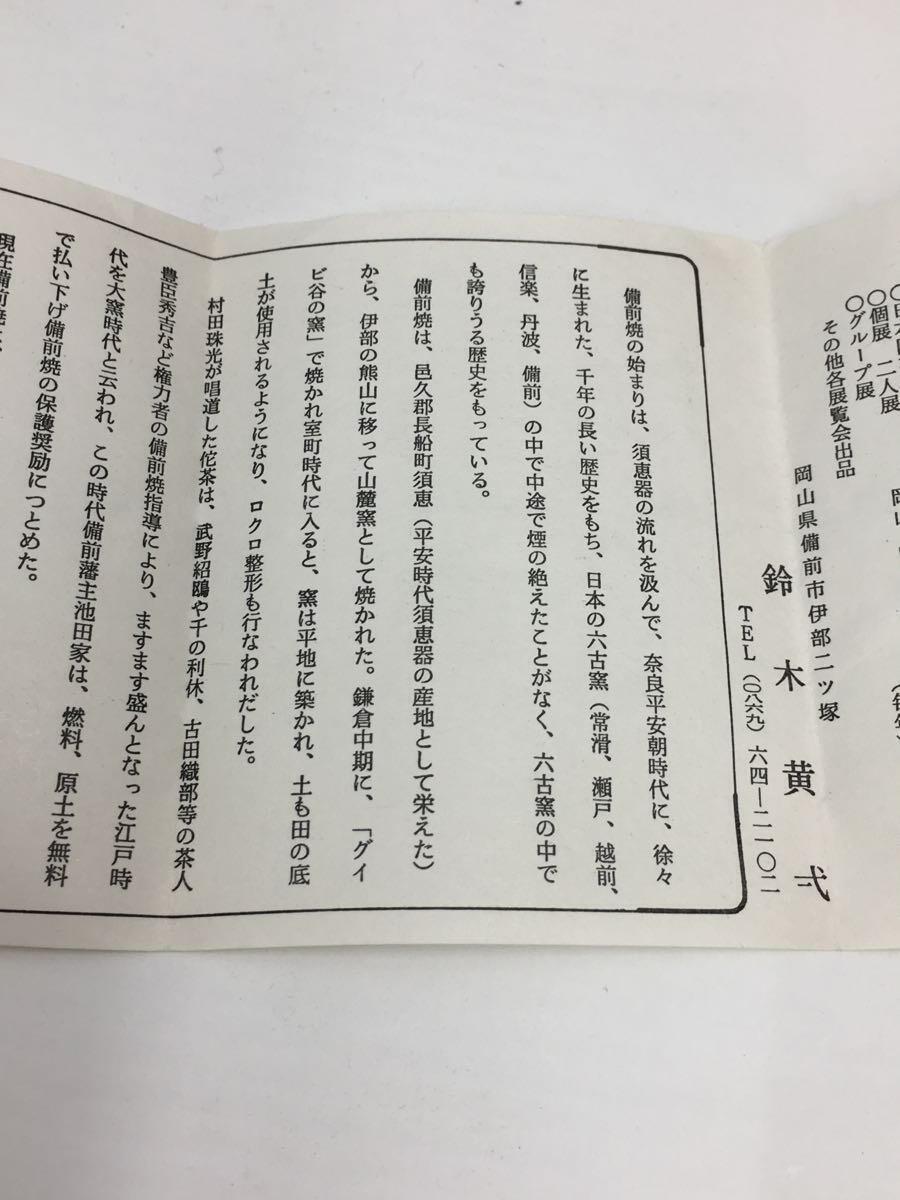 〇個展 二人展
〇グループ展
その他各展覧会出品
岡山県備前市伊部二ツ塚
鈴木黄弌
TEL(〇八六九)六四―二一〇二
備前焼の始まりは、須恵器の流れを汲んで、奈良平安朝時代に、徐々
に生まれた、千年の長い歴史をもち、日本の六古窯(常滑、瀬戸、越前、
信楽、丹波、備前)の中で中途で煙の絶えたことがなく、六古窯の中で
も誇りうる歴史をもっている。
備前焼は、邑久郡長船町須恵(平安時代須恵器の産地として栄えた)
から、伊部の熊山に移って山麓窯として焼かれた。鎌倉中期に、「グイ
ビ谷の窯」で焼かれ室町時代に入ると、窯は平地に築かれ、土も田の底
土が使用されるようになり、ロクロ整形も行なわれだした。
村田珠光が唱道した侘茶は、武野紹鴎や千の利休、古田織部等の茶人
豊臣秀吉など権力者の備前焼指導により、ますます盛んとなった江戸時
代を大窯時代と云われ、この時代備前藩主池田家は、燃料、原土を無料
で払い下げ備前焼の保護奨励につとめた。
現在備前焼は、